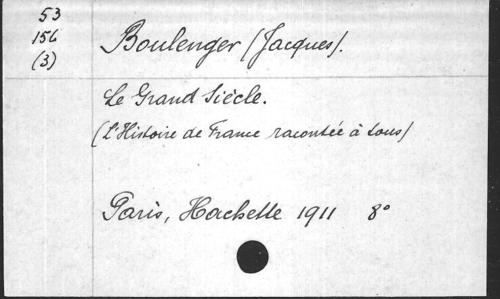 53
156
(3)
Boulenger (Jacques).
Le Grand Siècle.
(L'Histoire de France racontée à tous)
Paris, Hachette 1911 8°